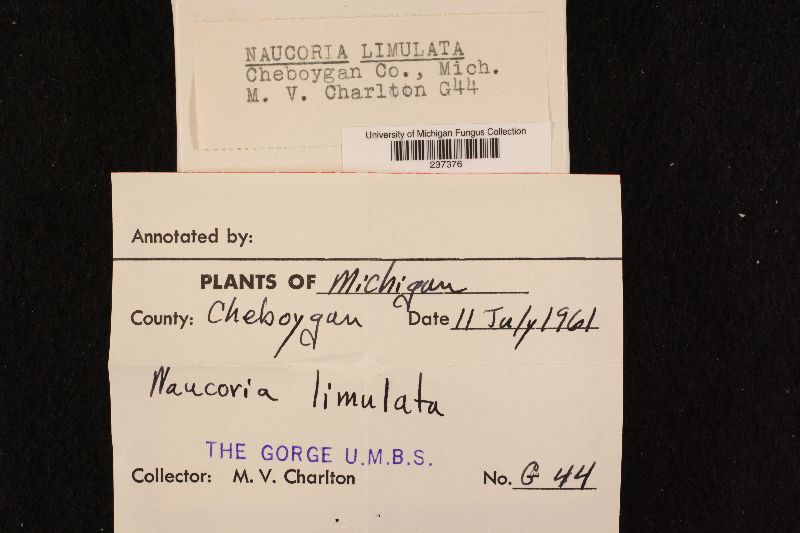 NAUCORIA LIMULATA
Cheboygan Co., Mich.
M. V. Charlton G44
University of Michigan Fungus Collection
237376
Annotated by:
PLANTS OF Michigan
County: Cheboygan Date 11 July 1961
Naucoria limulata
THE GORGE U.M.B.S.
Collector: M. V. Charlton No. G 44